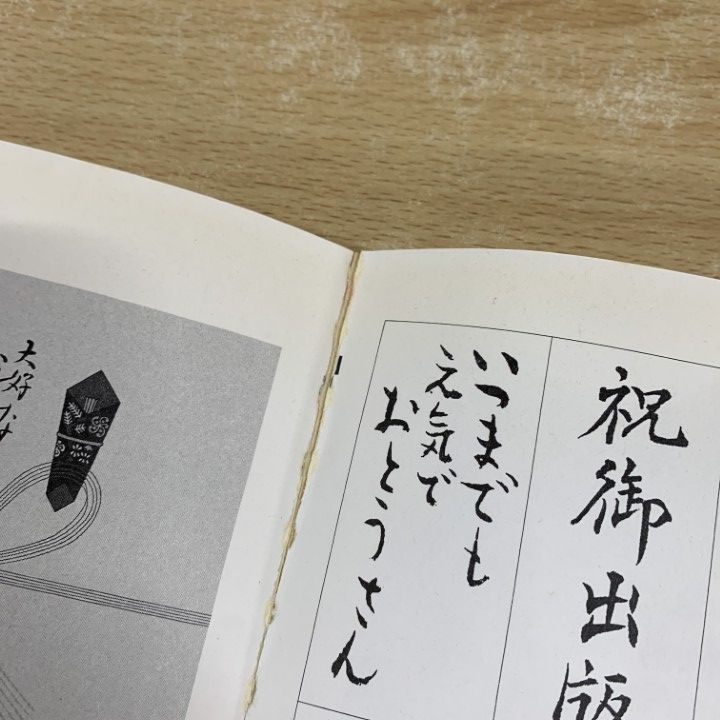 祝御出版
いつまでも
元気で
おとうさん
大好な